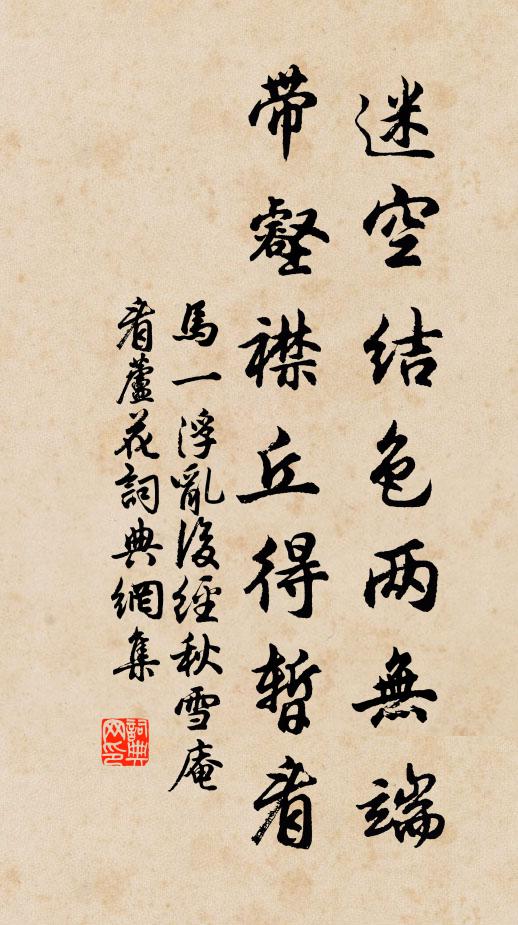 迷空结色两無端
带壑襟丘得暫看
馬一浮亂後經秋雪庵
看蘆花詞典網集
詞典网印